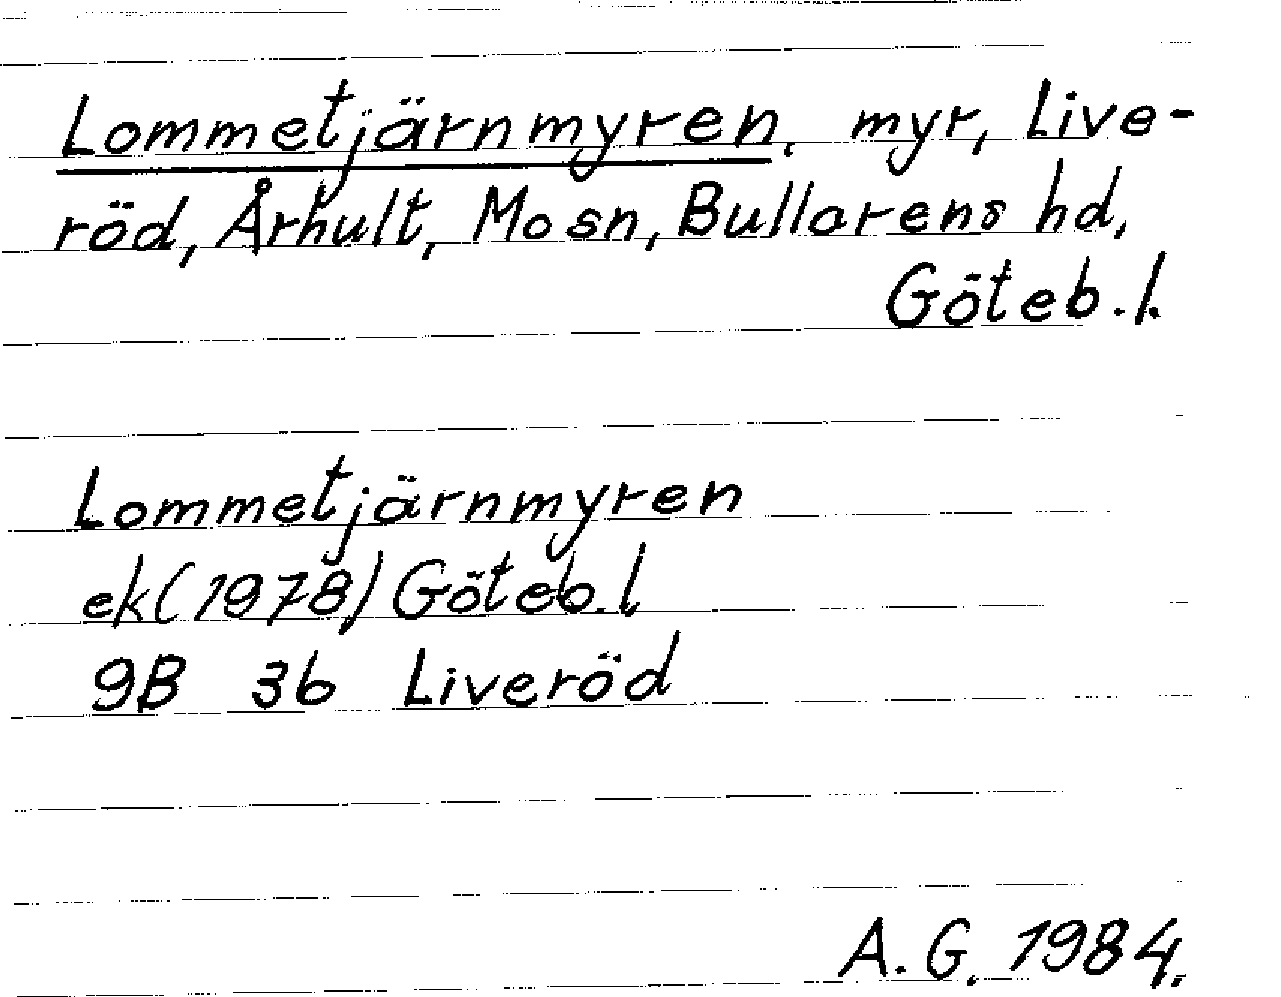 Lommetjärnmyren, myr, Live-
röd, Århult, Mo sn, Bullarens hd,
Göteb.l.
Lommetjärnmyren
ek(1978) Göteb.l
9B 3b Liveröd
A.G. 1984.